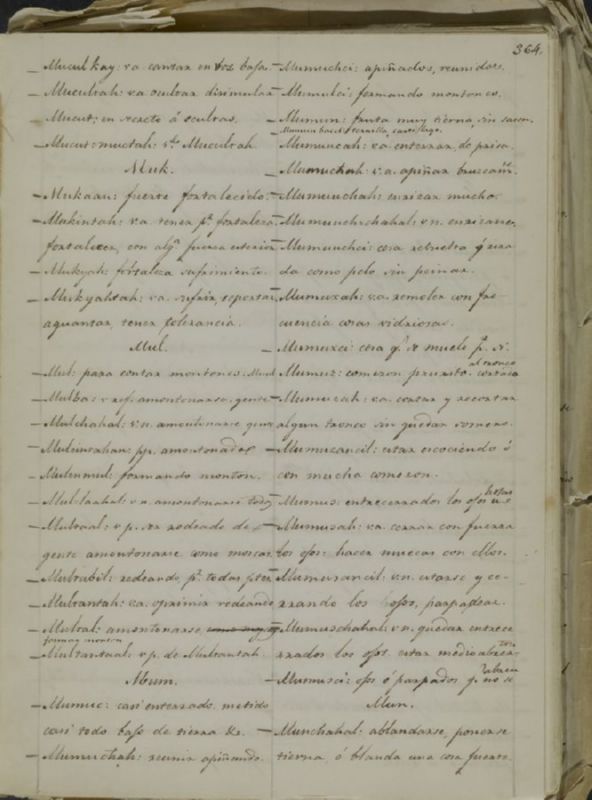 364.
– Mucul kay: va cantar en voz baja.
– Mucultah: v.a. ocultar disimular
Mucut: en secreto á ocultas.
– Mucut-muctah: Mucultah.
Muk.
– Mukaan: fuerte fortalecido.
– Mukintah: v.a. tener pr. fortaleza
fortalecer, con algª fuerza exterior
– Mukyah: fortaleza sufrimiento
– Mukyahtah: v.a. sufrir, soportar
aguantar, tener tolerancia.
Mul.
– Mul: para contar montones.
– Mulba: v ref. amontonarse gente
– Mulchahal: v.n. amontonarse
– pp. amontonados
– Mulenmul: formando monton.
– v.n. amontonarse todos
– v p. ser rodeado de
gente amontonarse como moscas
– rodeando, pr. todas
– v.a. oprimir rodeando
– amontonarse,
formar monton
– v.p. de
Mum.
– Mumuc: casi enterrado metido
casi todo bajo de tierra &c.
– Mumuchah: reunir apiñando.
– Mumuchci: apiñados, reunidos.
– Mumulci: formando montones.
– Mumun: fruta muy tierna, sin sazon.
Mumun ternilla, cartílago.
– Mumuncah: va enterrar, de prisa.
– Mumuchah: v.a. apiñar
– enrizar mucho.
– v.n. enrizarse
– cosa revuelta y riza
da como pelo sin peinar.
– Mumuxah: v.a. remoler con fre-
cuencia cosas vidriosas.
– Mumuxci: cosa q. se muele pr. sí.
– Mumuz: comezon prurito.
al tronco
– v.a. cortar y recortar
algun tronco sin quedar
– estar escociendo ó
con mucha comezon.
– Mumus: entrecerrados los ojos
– Mumusah: v.a. cerrar con fuerza
los ojos: hacer muecas con ellos.
– Mumusancil: v.n. estarse y ce-
rrando los ojos, parpadear.
– Mumuschahal: v.n. quedar entrece
rrados los ojos. estar medio
– Mumusci: ojos ó parpados q. no se
Mun.
– Munchahal: ablandarse, ponerse
tierna, ó blanda una cosa fuerte.